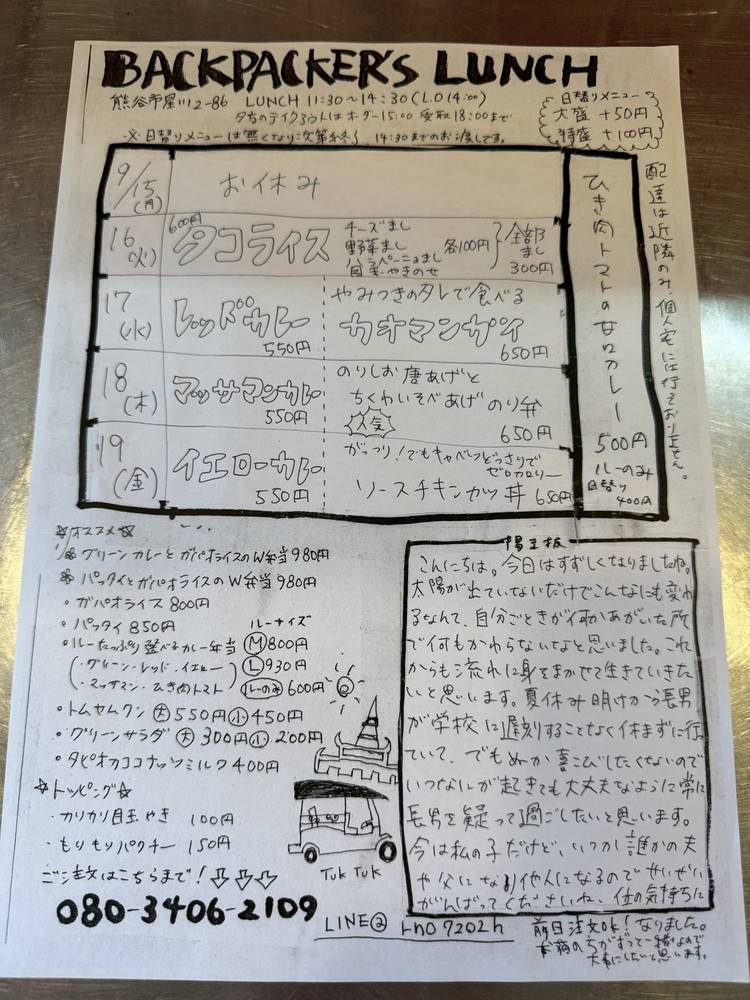 BACKPACKER'S LUNCH
熊谷市屋川2-86 LUNCH 11:30〜14:30(L.O 14:00)
夕方のテイクアウトはオーダー15:00 受取18:00まで
※日替りメニューは無くなり次第終了 14:30までのお渡しです。
日替りメニュー
大盛 +50円
特盛 +100円
9/15(月) お休み
16(火) 600円 タコライス
チーズまし
野菜まし
ハラペーニョまし
目玉やきのせ
各100円
全部まし
300円
17(水) レッドカレー
550円
やみつきのタレで食べる
カオマンガイ
650円
18(木) マッサマンカレー
550円
のりしお唐あげと
ちくわいそべあげ のり弁
人気
650円
19(金) イエローカレー
550円
がっつり!でもキャベツどっさりで
ゼロカロリー
ソースチキンカツ丼 650円
ひき肉トマトの甘口カレー
500円
ルーのみ
日替り
400円
配達は近隣のみ、個人宅には行っておりません。
☆オススメ☆
グリーンカレーとガパオライスのW弁当 980円
パッタイとガパオライスのW弁当 980円
・ガパオライス 800円
・パッタイ 850円
ルーサイズ
・ルーたっぷり選べるカレー弁当 M 800円
(・グリーン・レッド・イエロー L 930円
・マッサマン・ひき肉トマト) ルーのみ 600円
・トムヤムクン 大 550円 小 450円
・グリーンサラダ 大 300円 小 200円
・タピオカココナッツミルク 400円
☆トッピング☆
・カリカリ目玉やき 100円
・もりもりパクチー 150円
ご注文はこちらまで!
080-3406-2109
Tuk Tuk
LINE@
陽主板
こんにちは。今日はすずしくなりましたね。
太陽が出ていないだけでこんなにも変わ
るなんて、自分ごときが何かあがいた所
で何もかわらないなと思いました。これ
からも流れに身をまかせて生きていきた
いと思います。夏休み明けから長男
が学校に遅刻することなく休まずに行っ
ていて、でもぬか喜こびしたくないので
いつなにが起きても大丈夫なように常に
長男を疑って過ごしたいと思います。
今は私の子だけど、いつか誰かの夫
や父になり他人になるのでせいぜい
がんばってくださいね、位の気持ちに
なりました。
前日注文OK!
大事にしたいと思います。